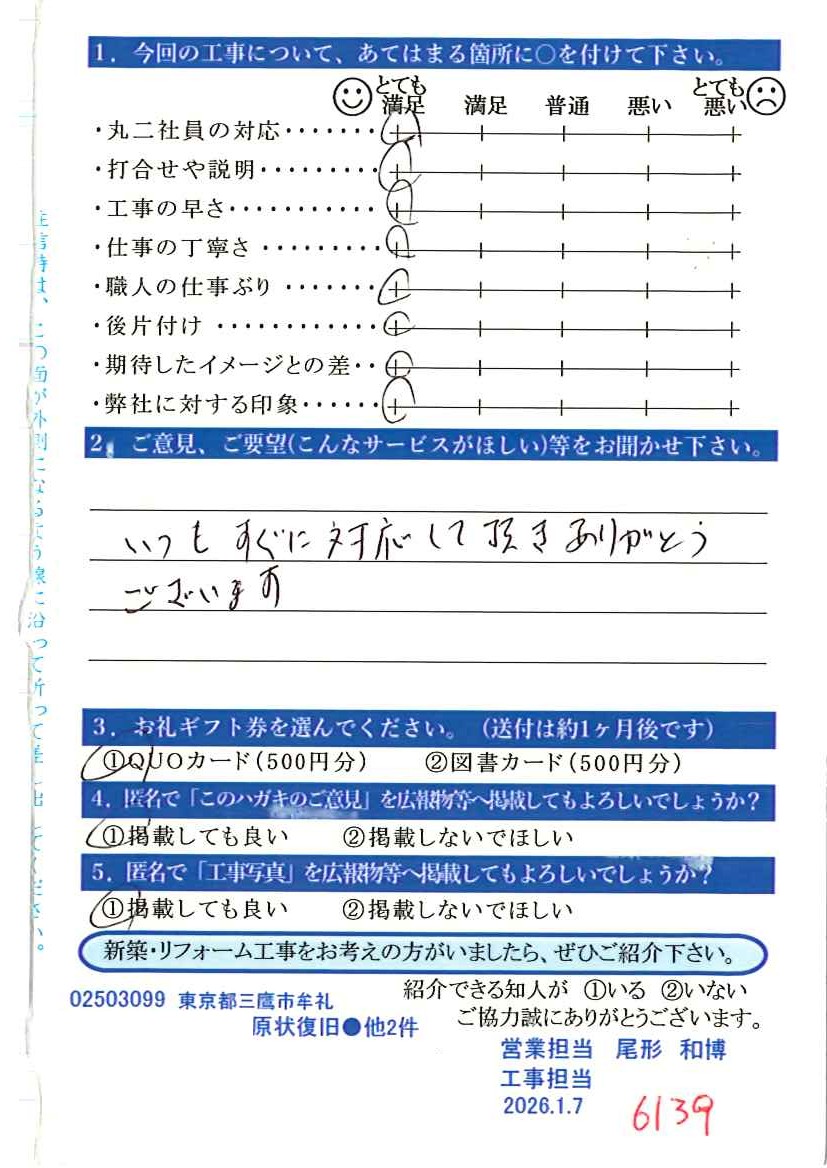 1. 今回の工事について、あてはまる箇所に○を付けて下さい。
とても満足 満足 普通 悪い とても悪い
・丸二社員の対応・・・・・・・
・打合せや説明・・・・・・・・・
・工事の早さ・・・・・・・・・・・
・仕事の丁寧さ・・・・・・・・・
・職人の仕事ぶり・・・・・・・
・後片付け・・・・・・・・・・・・
・期待したイメージとの差・・
・弊社に対する印象・・・・・・
2. ご意見、ご要望(こんなサービスがほしい)等をお聞かせ下さい。
いつもすぐに対応して頂きありがとう
ございます
3. お礼ギフト券を選んでください。(送付は約1ヶ月後です)
①QUOカード(500円分) ②図書カード(500円分)
4. 匿名で「このハガキのご意見」を広報物等へ掲載してもよろしいでしょうか?
①掲載しても良い ②掲載しないでほしい
5. 匿名で「工事写真」を広報物等へ掲載してもよろしいでしょうか?
①掲載しても良い ②掲載しないでほしい
新築・リフォーム工事をお考えの方がいましたら、ぜひご紹介下さい。
紹介できる知人が ①いる ②いない
02503099 東京都三鷹市牟礼
原状復旧●他2件
ご協力誠にありがとうございます。
営業担当 尾形 和博
工事担当
2026.1.7
6139